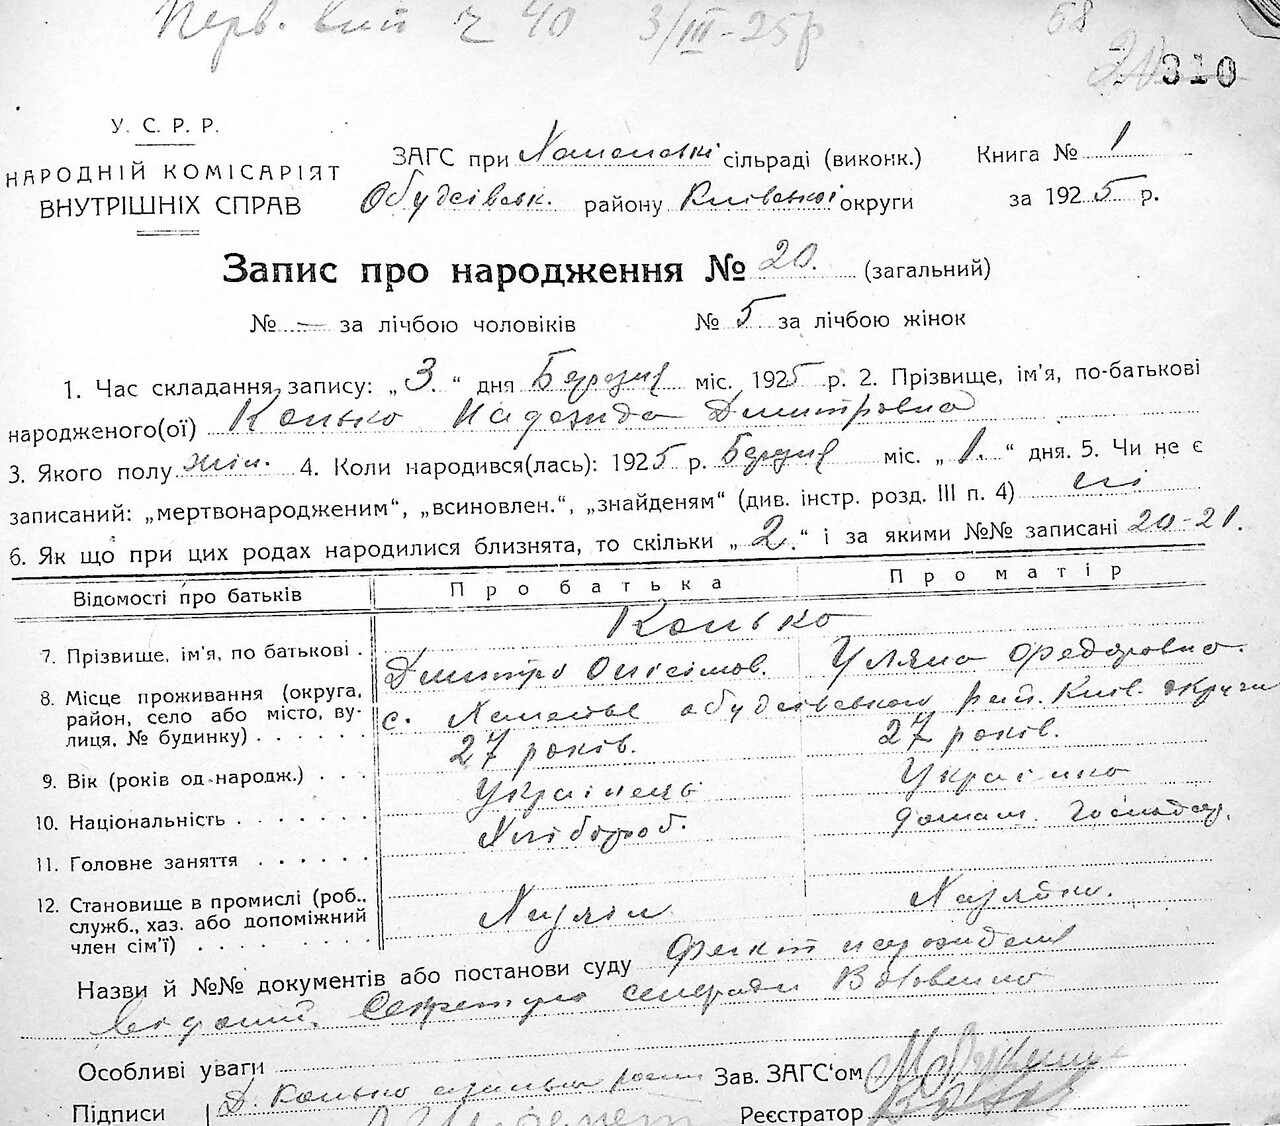 Перв. вип ч 40 3/III-25р
68
20 310
У. С. Р. Р.
НАРОДНІЙ КОМІСАРІЯТ
ВНУТРІШНІХ СПРАВ
ЗАГС при сільраді (виконк.)
Обухівськ. району Київської округи
Книга № 1
за 1925 р.
Запис про народження № 20. (загальний)
№ — за лічбою чоловіків № 5 за лічбою жінок
1. Час складання запису: „3.“ дня Березня міс. 1925 р. 2. Прізвище, ім'я, по-батькові
народженого(ої) Конько Надежда Дмитровна
3. Якого полу жін. 4. Коли народився(лась): 1925 р. Березня міс. „1.“ дня. 5. Чи не є
записаний: „мертвонародженим“, „всиновлен.“, „знайденям“ (див. інстр. розд. III п. 4) ні
6. Як що при цих родах народилися близнята, то скільки „2.“ і за якими №№ записані 20-21.
Відомості про батьків Про батька Про матір
Конько
7. Прізвище, ім'я, по батькові . Дмитро Онісімов. Уляна Федоровна.
8. Місце проживання (округа, район, село або місто, вулиця, № будинку) . . . . . . с. обухівського рай. Київ. округи
9. Вік (років од народж.) . . . 27 років. 27 років.
10. Національність . . . . . . . Українець Українка
11. Головне заняття . . . . . . Хлібороб. домаш. господар.
12. Становище в промислі (роб., служб., хаз. або допоміжний член сім'ї) . . . . . . . . Хазяін Хазяйка.
Назви й №№ документів або постанови суду Факт нарождения
видний. Секретарь сельради Вовченко
Особливі уваги
Зав. ЗАГС'ом
Підписи Д. Конько
Реєстратор